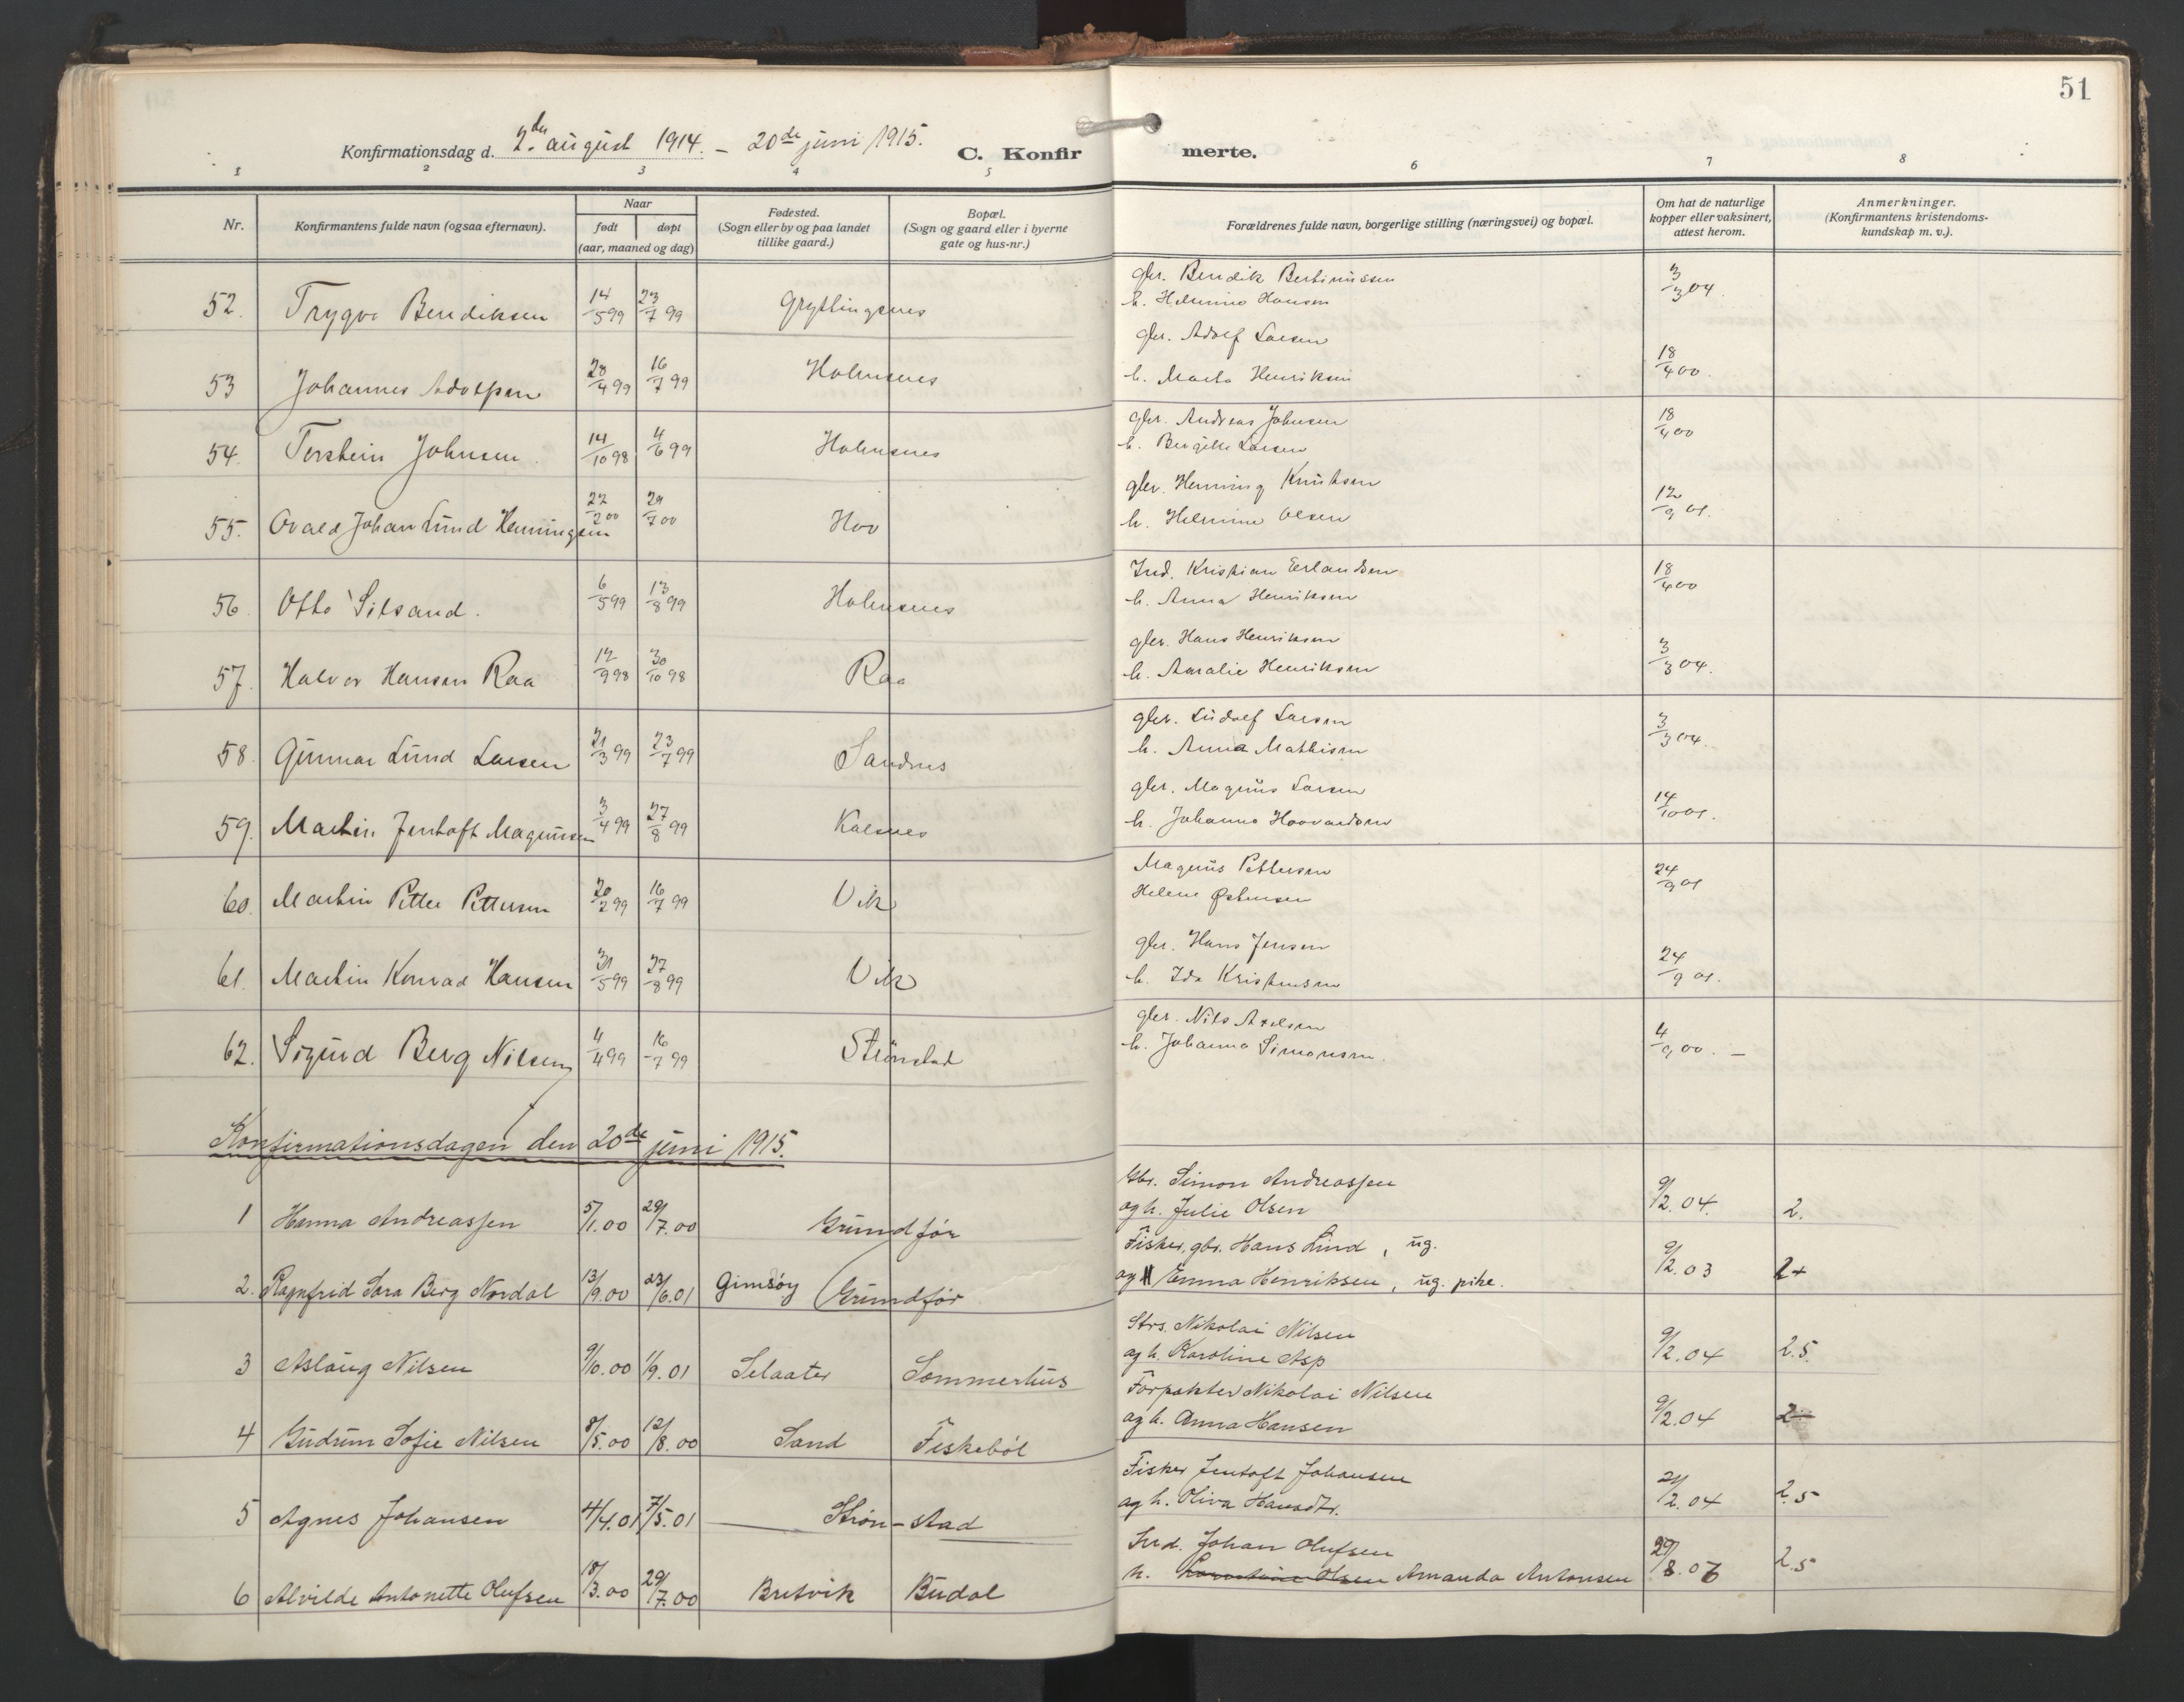 51
Konfirmationsdag d. 2den august 1914. – 20de juni 1915.
C. Konfirmerte.
1 2 3 4 5 6 7 8
Nr. Konfirmantens fulde navn (ogsaa efternavn). Naar født døpt (aar, maaned og dag) Fødested. (Sogn eller by og paa landet tillike gaard.) Bopæl. (Sogn og gaard eller i byerne gate og hus-nr.) Forældrenes fulde navn, borgerlige stilling (næringsvei) og bopæl. Om hat de naturlige kopper eller vaksinert, attest herom. Anmerkninger. (Konfirmantens kristendoms-kundskap m. v.).
52. Trygve Bendiksen 14/5 99 23/7 99 Gryttingsnes gbr. Bendik Bertinussen 3/3 04.
h. Helmine Hansen
53 Johannes Adolfsen 28/4 99 16/7 99 Holmsnes gbr. Adolf Larsen 18/4 00.
h. Marta Henriksen
54. Torstein Johnsen 14/10 98 4/6 99 Holmsnes gbr. Andreas Johnsen 18/4 00
h. Bergitte Larsen
55. Ovald Johan Lund Henningsen 22/2 00 29/7 00 Hov gbr. Henning Knutsen 12/9 01.
h. Helmine Olsen
56. Otto Silsand. 6/5 99 13/8 99 Holmsnes Ind. Kristian Erlandsen 18/4 00
h. Anna Henriksen
57. Halvor Hansen Raa 12/9 98 30/10 98 Raa gbr. Hans Henriksen 3/3 04.
h. Amalie Henriksen
58. Gunnar Lund Larsen 21/3 99 23/7 99 Sandnes gbr. Ludolf Larsen 3/3 04.
h. Anna Mathisen
59. Martin Jentoft Magnussen 3/4 99 27/8 99 Kalsnes gbr. Magnus Larsen 14/10 01.
h. Johanna Hoovardsen
60. Martin Petter Pettersen 20/2 99 16/7 99 Vik Magnus Pettersen 24/9 01
Helene Østensen
61. Martin Konrad Hansen 31/5 99 27/8 99 Vik gbr. Hans Jensen 24/9 01.
h. Ida Kristensen
62. Sigurd Berg Nilsen 4/4 99 16/7 99 Strønstad gbr. Nils Axelsen 4/9 00. –
h. Johanna Simonsen.
Konfirmationsdagen den 20de juni 1915.
1 Hanna Andreassen 5/1.00 29/7.00 Grundfør Gbr. Simon Andreassen 9/2.04. 2.
og h. Julie Olsen
2. Ragnfrid Sara Berg Nordal 13/9.00 23/6.01 Gimsøy Grundfør Fisker, gbr. Hans Lind, ug. 9/2.03 2+
og Emma Henriksen, ug. pike.
3 Aslaug Nilsen 9/10.00 1/9.01 Selaater Sommerhus Strs. Nikolai Nilsen 9/2.04 2.5.
og h. Karoline Asp
4 Gudrun Sofie Nilsen 8/5.00 12/8.00 Sand Fiskebøl Forpakter Nikolai Nilsen 9/2.04 2
og h. Anna Hansen
5 Agnes Johansen 4/4.01 7/5.01 Strøn-stad Fisker Jentoft Johansen 21/2.04 2.5
og h. Oliva Hansdtr.
6 Alvilde Antonette Olufsen 18/3.00 29/7.00 Bretvik Budal Ind. Johan Olufsen 29/8.06 2.5
h. Olsen Amanda Antonsen